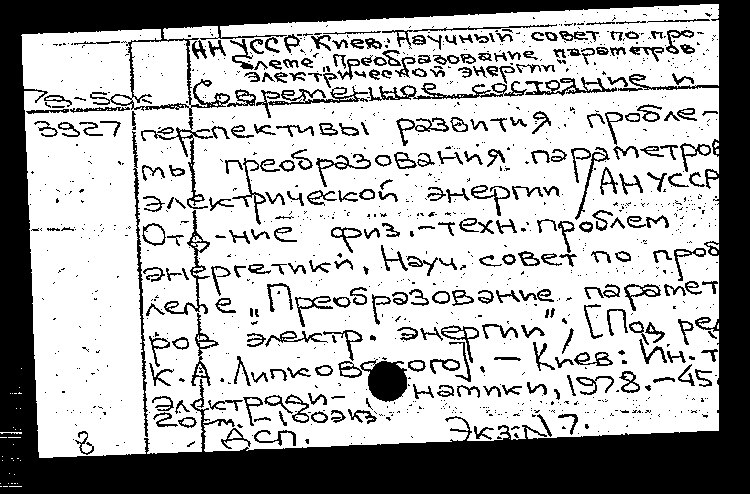 АН УССР. Киев. Научный совет по про-
блеме "Преобразование параметров
электрической энергии"
78-50к Современное состояние и
3927 перспективы развития пробле-
мы преобразования параметров
электрической энергии / АН УССР
Отд-ние физ.-техн. проблем
энергетики, Науч. совет по проб
леме "Преобразование парамет
ров электр. энергии"; [Под ред
К.А. Липковского]. - Киев: Ин-т
электроди- намики, 1978. - 45
20 см. - 100экз.
8 ДСП. Экз. N 7.